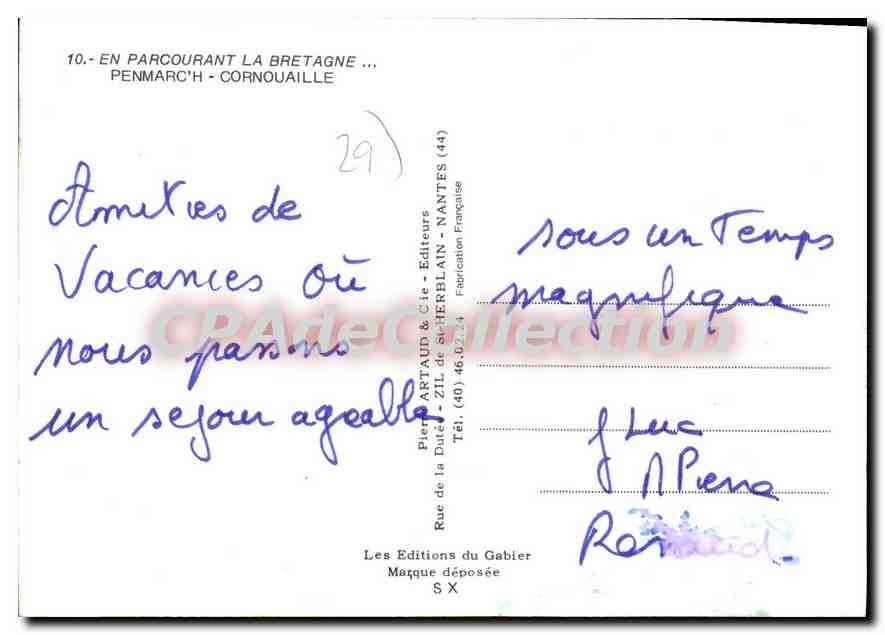 10.- EN PARCOURANT LA BRETAGNE ...
PENMARC'H - CORNOUAILLE
29)
Amities de
Vacances où
nous passons
un sejour ageable
Pierre ARTAUD & Cie - Editeurs
Rue de la Dutée - ZIL de St-HERBLAIN - NANTES (44)
Tél. (40) 46.02.24 Fabrication Française
sous un Temps
magnifique
J Luc
M Pierre
Renaud
Les Editions du Gabier
Marque déposée
S X
CPAdeCollection